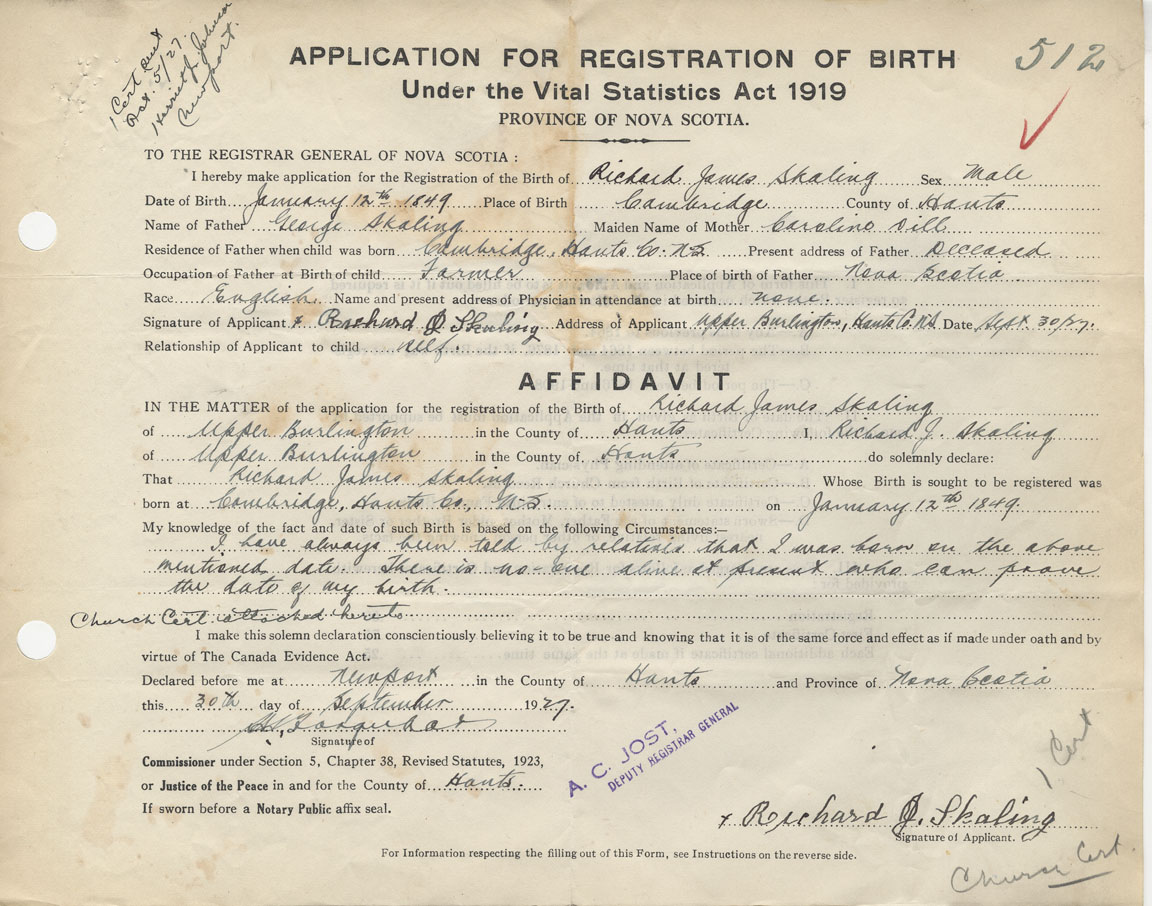 1 Cert sent
Oct. 5/27.
Harriet J. Johnson
Newport.
512
APPLICATION FOR REGISTRATION OF BIRTH
Under the Vital Statistics Act 1919
PROVINCE OF NOVA SCOTIA.
TO THE REGISTRAR GENERAL OF NOVA SCOTIA :
I hereby make application for the Registration of the Birth of Richard James Skaling Sex Male
Date of Birth January 12th 1849 Place of Birth Cambridge County of Hants
Name of Father George Skaling Maiden Name of Mother Caroline Dill
Residence of Father when child was born Cambridge, Hants Co. N.S. Present address of Father Deceased
Occupation of Father at Birth of child Farmer Place of birth of Father Nova Scotia
Race English Name and present address of Physician in attendance at birth none.
Signature of Applicant x Richard J. Skaling Address of Applicant Upper Burlington, Hants Co. N.S. Date Sept. 30/27.
Relationship of Applicant to child self.
AFFIDAVIT
IN THE MATTER of the application for the registration of the Birth of Richard James Skaling
of Upper Burlington in the County of Hants I, Richard J. Skaling
of Upper Burlington in the County of Hants do solemnly declare:
That Richard James Skaling Whose Birth is sought to be registered was
born at Cambridge, Hants Co., N.S. on January 12th 1849.
My knowledge of the fact and date of such Birth is based on the following Circumstances:—
I have always been told by relatives that I was born on the above
mentioned date. There is no-one alive at present who can prove
the date of my birth.
Church Cert. attached hereto
I make this solemn declaration conscientiously believing it to be true and knowing that it is of the same force and effect as if made under oath and by
virtue of The Canada Evidence Act.
Declared before me at Newport in the County of Hants and Province of Nova Scotia
this 30th day of September 1927.
Signature of
Commissioner under Section 5, Chapter 38, Revised Statutes, 1923,
or Justice of the Peace in and for the County of Hants.
If sworn before a Notary Public affix seal.
A. C. JOST,
DEPUTY REGISTRAR GENERAL
1 Cert
x Richard J. Skaling
Signature of Applicant.
For Information respecting the filling out of this Form, see Instructions on the reverse side.
Church Cert.